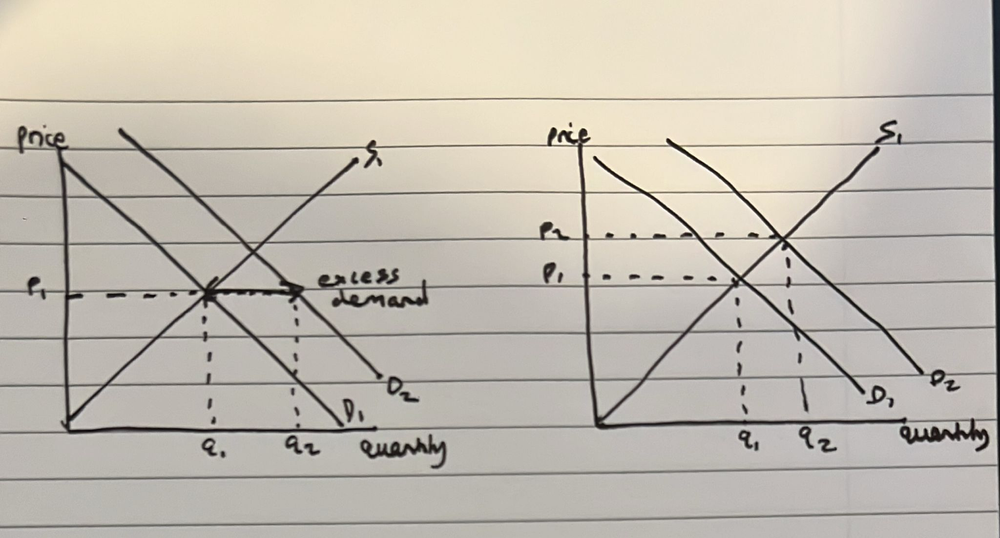 Price
S1
P1
excess
demand
D2
D1
q1
q2
quantity
price
S1
P2
P1
D2
D1
q1
q2
quantity